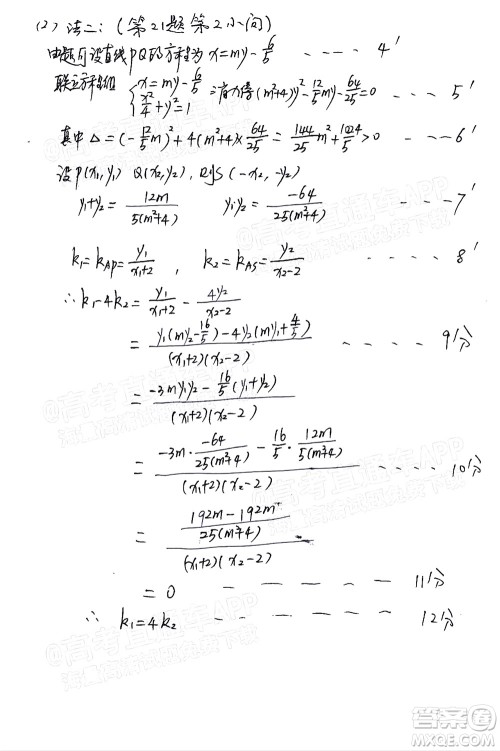 (2) 法二：(第21题第2小问)
由题可设直线PQ的方程为 x=my-6/5 ---- 4'
联立方程组 { x=my-6/5 ; x²/4+y²=1 } 消x得(m²+4)y²-12/5my-64/25=0 --- 5'
其中 Δ=(-12/5m)²+4(m²+4)×64/25=144/25m²+1024/5>0 --- 6'
设P(x₁,y₁) Q(x₂,y₂), 则S(-x₂,-y₂)
y₁+y₂=12m/5(m²+4) y₁y₂=-64/25(m²+4) ---- 7'
k₁=kAP=y₁/x₁+2 , k₂=kAS=y₂/x₂-2 ---- 8'
∴k₁-4k₂=y₁/x₁+2-4y₂/x₂-2
=y₁(my₂-16/5)-4y₂(my₁+4/5)/(x₁+2)(x₂-2) ---- 9分
=-3my₁y₂-16/5(y₁+y₂)/(x₁+2)(x₂-2)
=-3m·-64/25(m²+4)-16/5·12m/5(m²+4)/(x₁+2)(x₂-2) --- 10分
=192m-192m/25(m²+4)/(x₁+2)(x₂-2)
=0 ------ 11分
∴ k₁=4k₂ ------ 12分
@高考直通车APP
答案圈
MXQE.COM